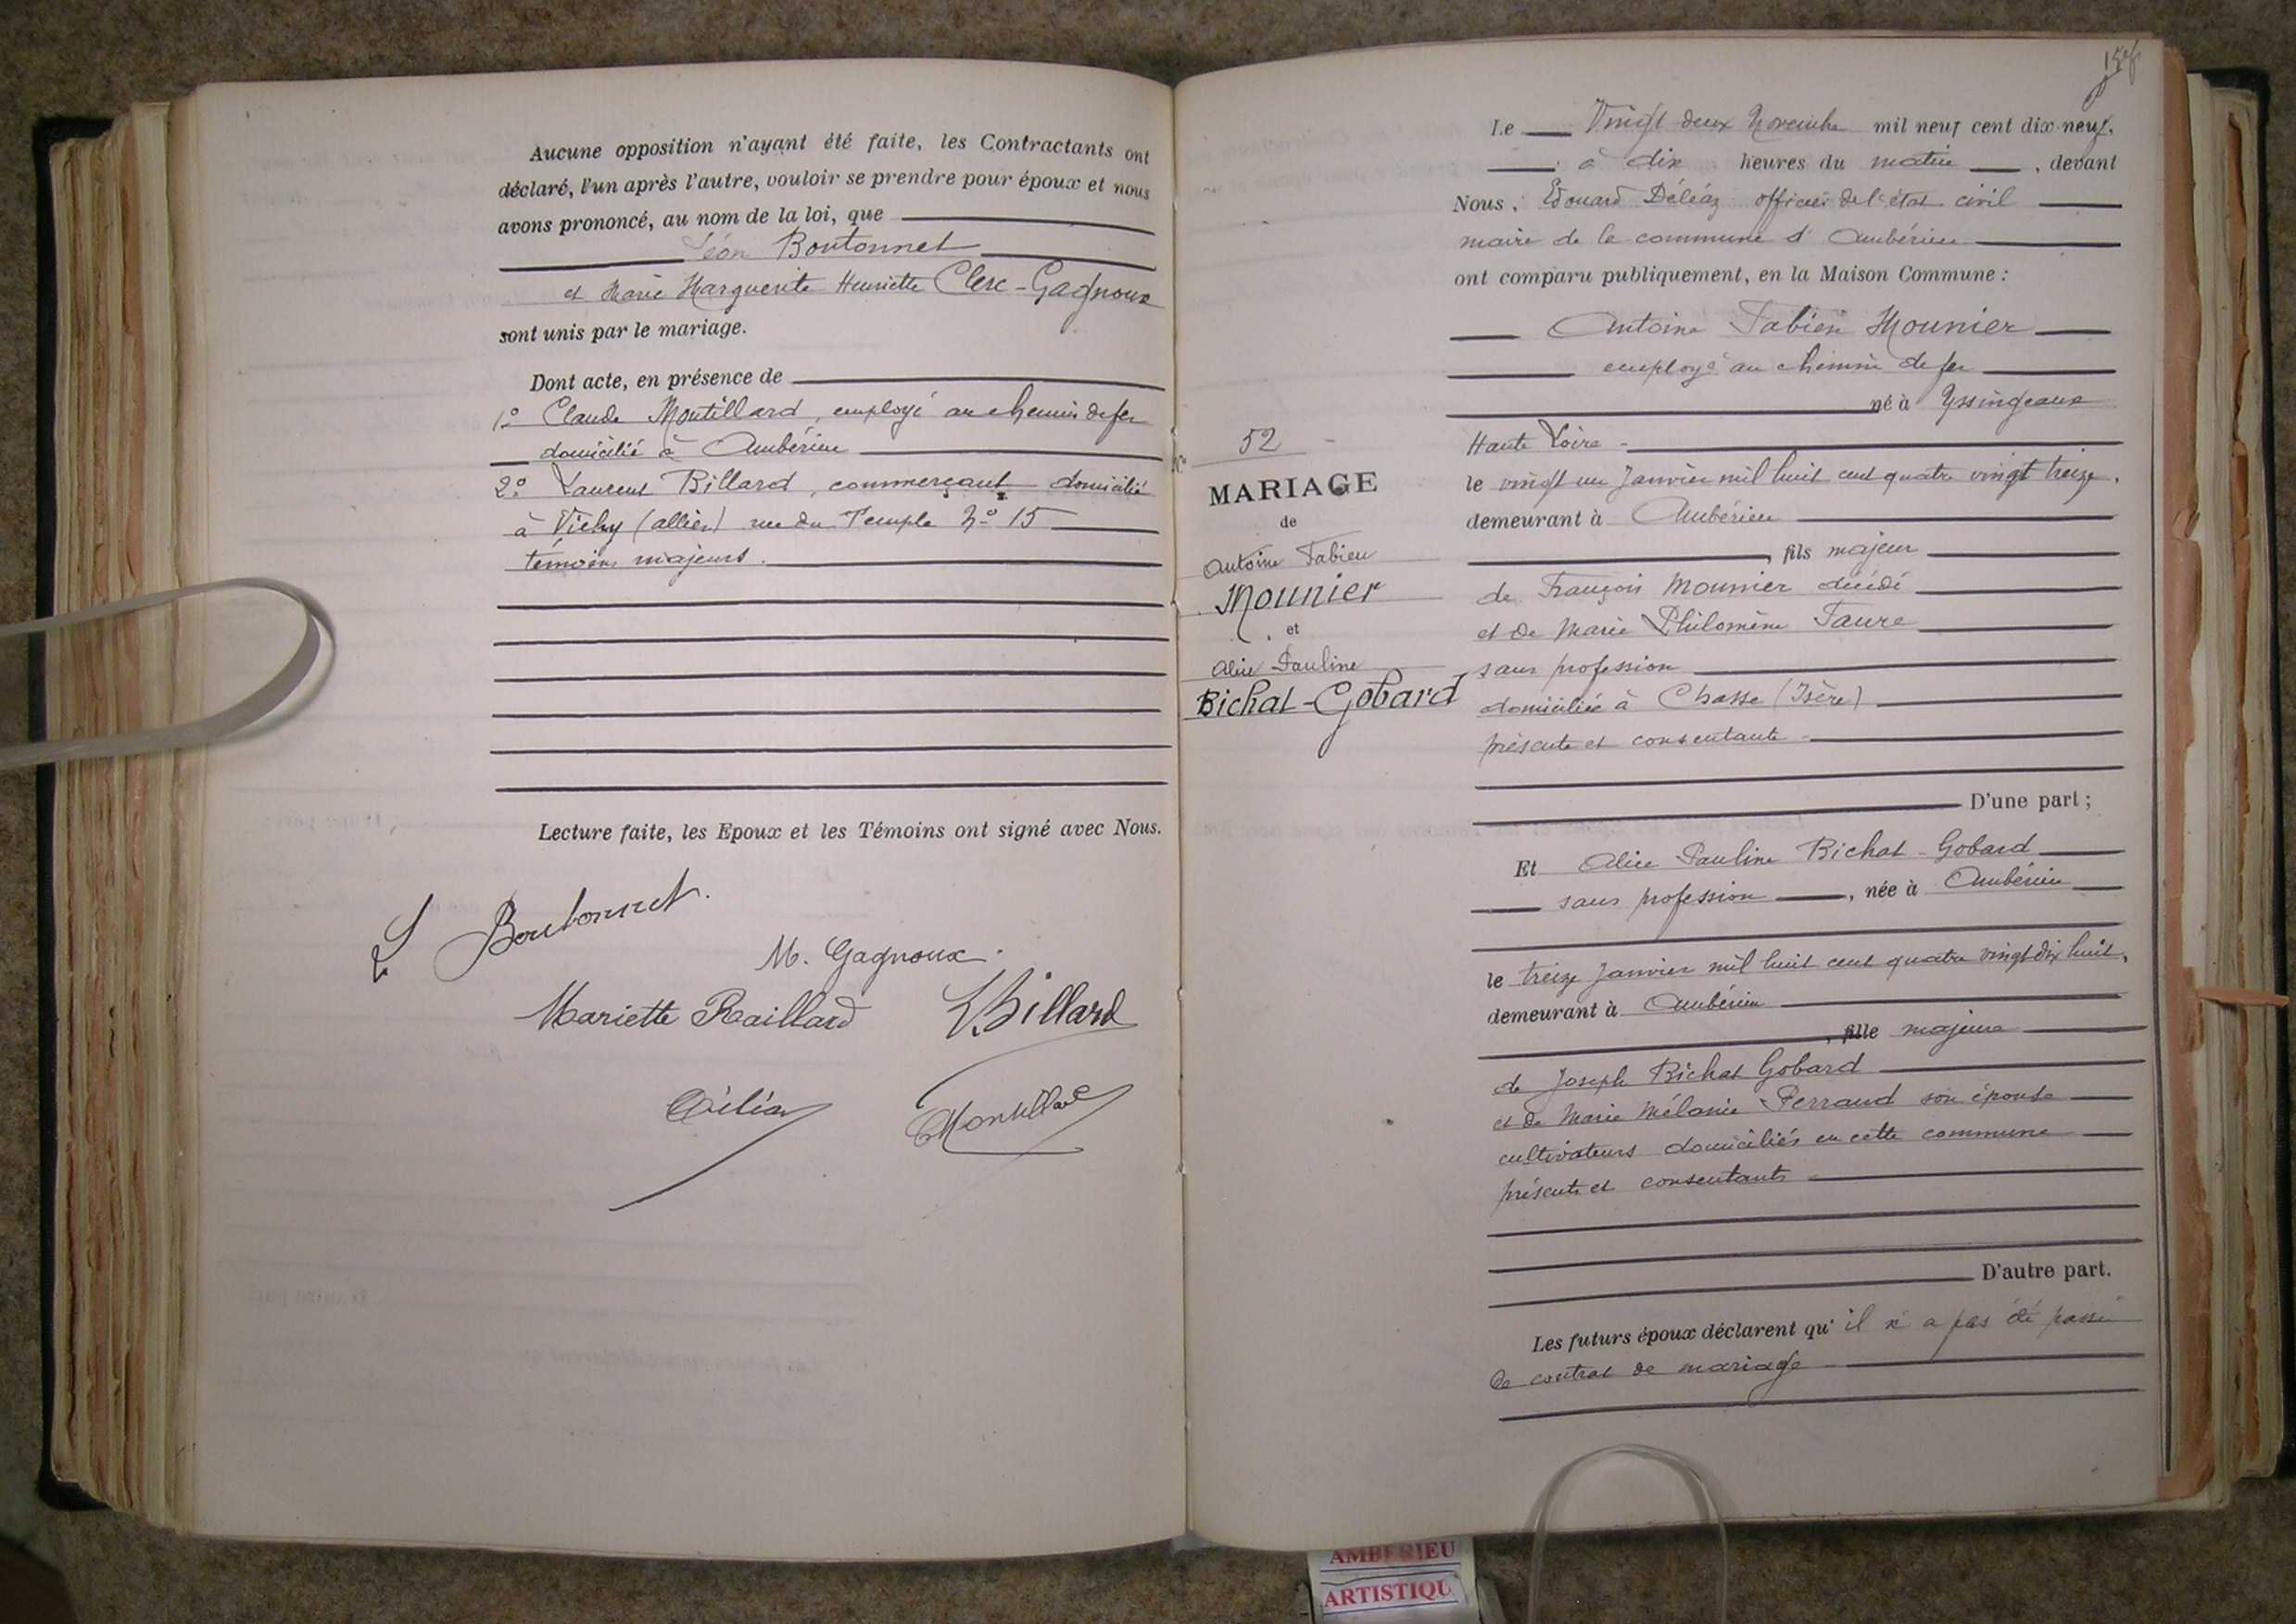 Aucune opposition n'ayant été faite, les Contractants ont
déclaré, l'un après l'autre, vouloir se prendre pour époux et nous
avons prononcé, au nom de la loi, que
Léon Boutonnet
et Marie Marguerite Henriette Clerc-Gagnoux
sont unis par le mariage.
Dont acte, en présence de
1º Claude Montillard, employé au chemin de fer
domicilié à Ambérieu
2º Laurent Billard, commerçant domicilié
à Vichy (allier) rue du Temple Nº 15
témoins majeurs.
Lecture faite, les Epoux et les Témoins ont signé avec Nous.
L Boutonnet.
M. Gagnoux.
Mariette Raillard
L. Billard
Déléaz
Montillard
Le Vingt deux Novembre mil neuf cent dix-neuf,
à dix heures du matin, devant
Nous, Edouard Déléaz officier de l'état civil
maire de la commune d'Ambérieu
ont comparu publiquement, en la Maison Commune :
Antoine Fabien Mounier
employé au chemin de fer
né à Yssingeaux
Haute Loire
le vingt un Janvier mil huit cent quatre vingt treize,
demeurant à Ambérieu
, fils majeur
de François Mounier décédé
et de Marie Philomène Faure
sans profession
domiciliée à Chasse (Isère)
présente et consentante
D'une part ;
Et Alice Pauline Bichat-Gobard
sans profession, née à Ambérieu
le treize Janvier mil huit cent quatre vingt dix huit,
demeurant à Ambérieu
, fille majeure
de Joseph Bichat Gobard
et de Marie Mélanie Perraud son épouse
cultivateurs domiciliés en cette commune
présents et consentants
D'autre part.
Les futurs époux déclarent qu'il n'a pas été passé
de contrat de mariage
Nº 52
MARIAGE
de
Antoine Fabien
Mounier
et
Alice Pauline
Bichat-Gobard
AMBERIEU
ARTISTIQU